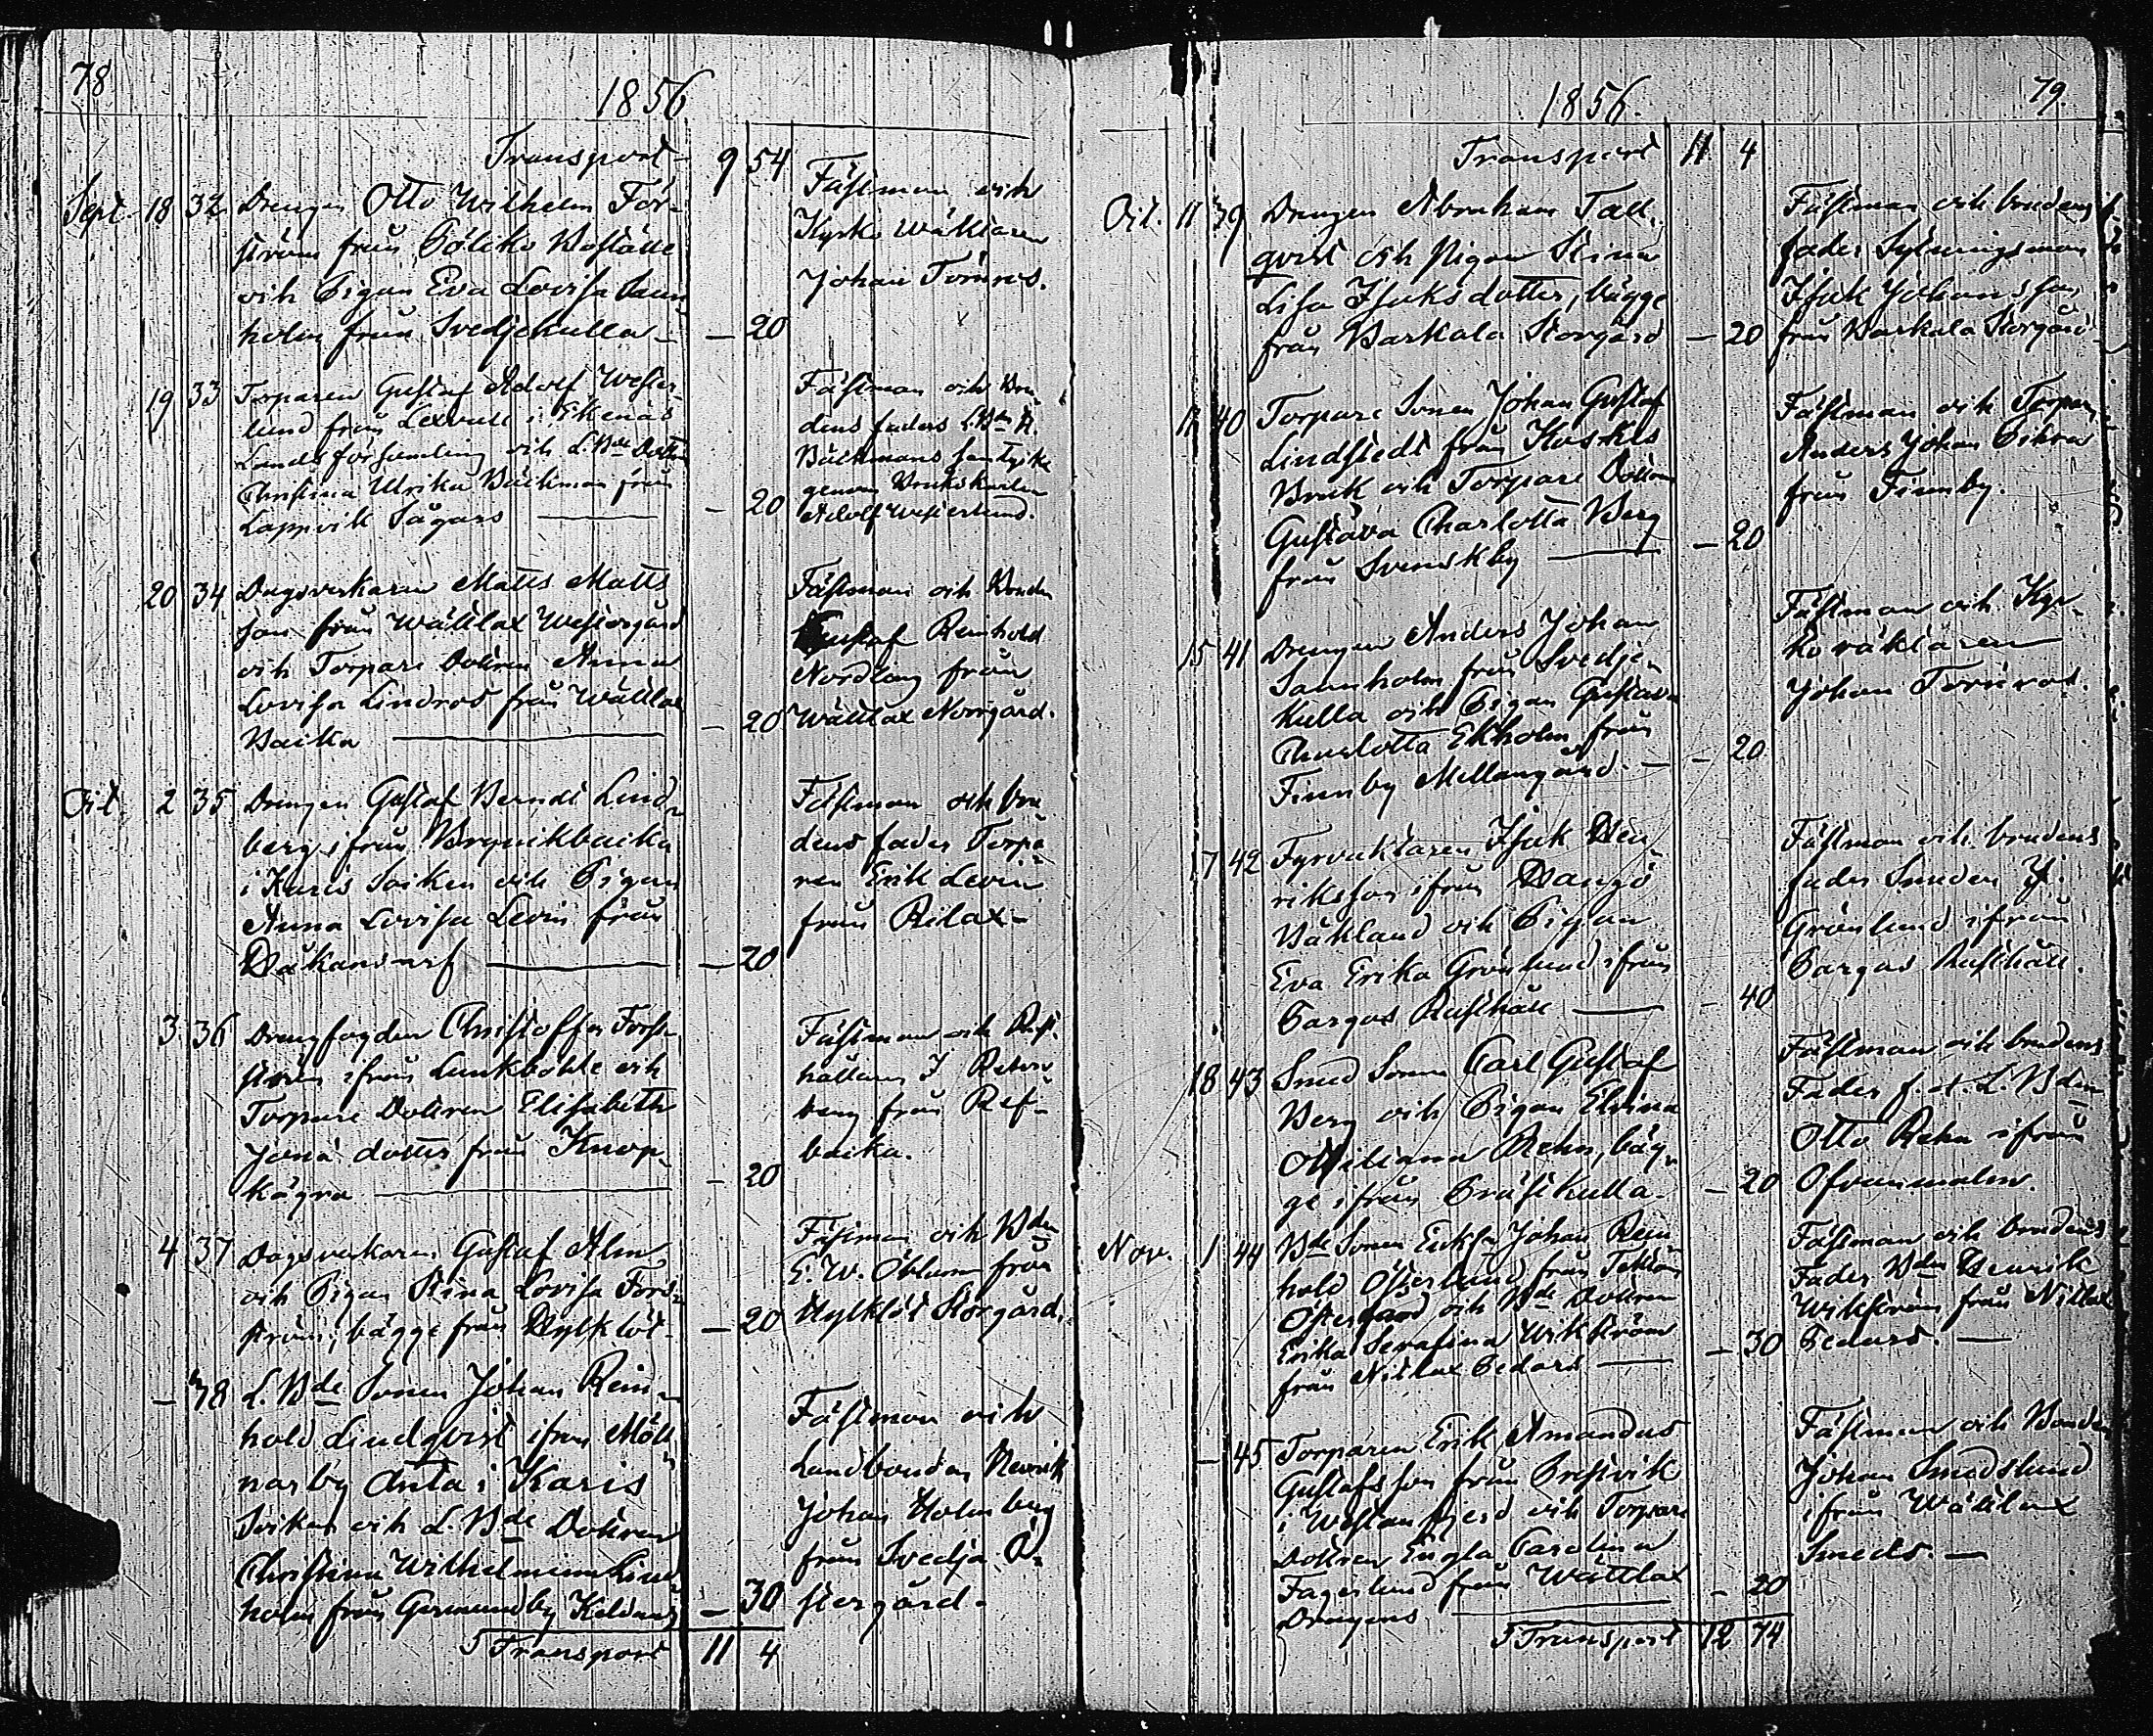 78
1856
Transport 9 54
Sept. 18 32 Drengen Otto Wilhelm Fors-
ström från Böliks Boställe
och Pigan Eva Lovisa Sann-
holm från Svedjekulla — 20
Fästman och
Kyrko Wäktaren
Johan Törnros.
19 33 Torparen Gustaf Adolf Wester-
lund från Lexvall i Ekenäs
Lands församling och L. Bde Dottren
Christina Ulrika Bäckman från
Lappvik Sågars — 20
Fästman och Bru-
dens faders L. Bdn A.
Bäckmans samtycke
genom Brukskarlen
Adolf Westerlund.
20 34 Dagsverkaren Matts Matts-
son från Wättlax Westergård
och Torpare Dottren Anna
Lovisa Lindros från Wättlax
Backa — 20
Fästman och Bonden
Gustaf Reinhold
Nordling från
Wättlax Norrgård.
Oct. 2 35 Drengen Gustaf Berndt Lind-
berg ifrån Brqvikbacka
i Karis Socken och Pigan
Anna Lovisa Levin från
Håkansarf — 20
Fästman och bru-
dens fader Torpa-
ren Erik Levin
från Rilax-
3 36 Drengfogden Christoffer Fors-
ström ifrån Lunkböhle och
Torpare Dottren Elisabeth
Jona dotter från Knop-
kägra — 20
Fästman och Rust-
hållaren J. Peters-
berg från Ref-
backa.
4 37 Dagsverkaren Gustaf Alm
och Pigan Stina Lovisa Fors-
ström, bägge från Hylklöt — 20
Fästman och Bdn
E. W. Öhman från
Hylklöt Storgård.
— 38 L. Bde Sonen Johan Rein-
hold Lindqvist ifrån Möll-
narby Anta i Karis
Socken och L. Bde Dottren
Christina Wilhelmina Lind-
holm från Germundby Keldars — 30
Fästman och
Landbonden Henrik
Johan Holmberg
från Svedja Ö-
stergård.
S Transport 11 4
1856.
79.
Transport 11 4
Oct. 11 39 Drengen Abraham Tall-
qvist och Pigan Stina
Lisa Isaksdotter, bägge
från Barkala Storgård — 20
Fästman och brudens
fader Sytningsman
Isak Johansson
från Barkala Storgård
12 40 Torpare Sonen Johan Gustaf
Lindstedt från Koskis
Bruk och Torpare Dottren
Gustava Charlotta Berg
från Svenskby — 20
Fästman och Torparen
Anders Johan
från Finnby.
15 41 Drengen Anders Johan
Sannholm från Svedje-
kulla och Pigan Gustava
Charlotta Ekholm från
Finnby Mellangård. — 20
Fästman och Kyr-
ko väktaren
Johan Törnros.
17 42 Fyrvaktaren Isak Hen-
riksson ifrån Hangö
Båkland och Pigan
Eva Erika Grönlund ifrån
Pargas Rusthåll — 40
Fästman och brudens
fader Smeden
Grönlund ifrån
Pargas Rusthåll.
18 43 Smed Sonen Carl Gustaf
Berg och Pigan Elvina
Ottiliana Rehn, bäg-
ge ifrån Prästkulla — 20
Fästman och brudens
Fader f. d. L. Bden
Otto Rehn ifrån
Ofvanmalm.
Nov. 1 44 Bde Sonen Enkl. Johan Rein-
hold Österlund från Tecktor
Östergård och Bde Dottren
Erika Serafina Wikström
från Nitlax Pedars — 30
Fästman och brudens
Fader Bden Henrik
Wikström från Nitlax
Pedars. —
— 45 Torparen Erik Amandus
Gustafsson från Prestvik
i Westanfjerd och Torpare
Dottren Engla Carolina
Fagerlund från Wättlax
Drengens — 20
Fästman och Bonden
Johan Smedslund
ifrån Wättlax
Smeds. —
S Transport 12 74